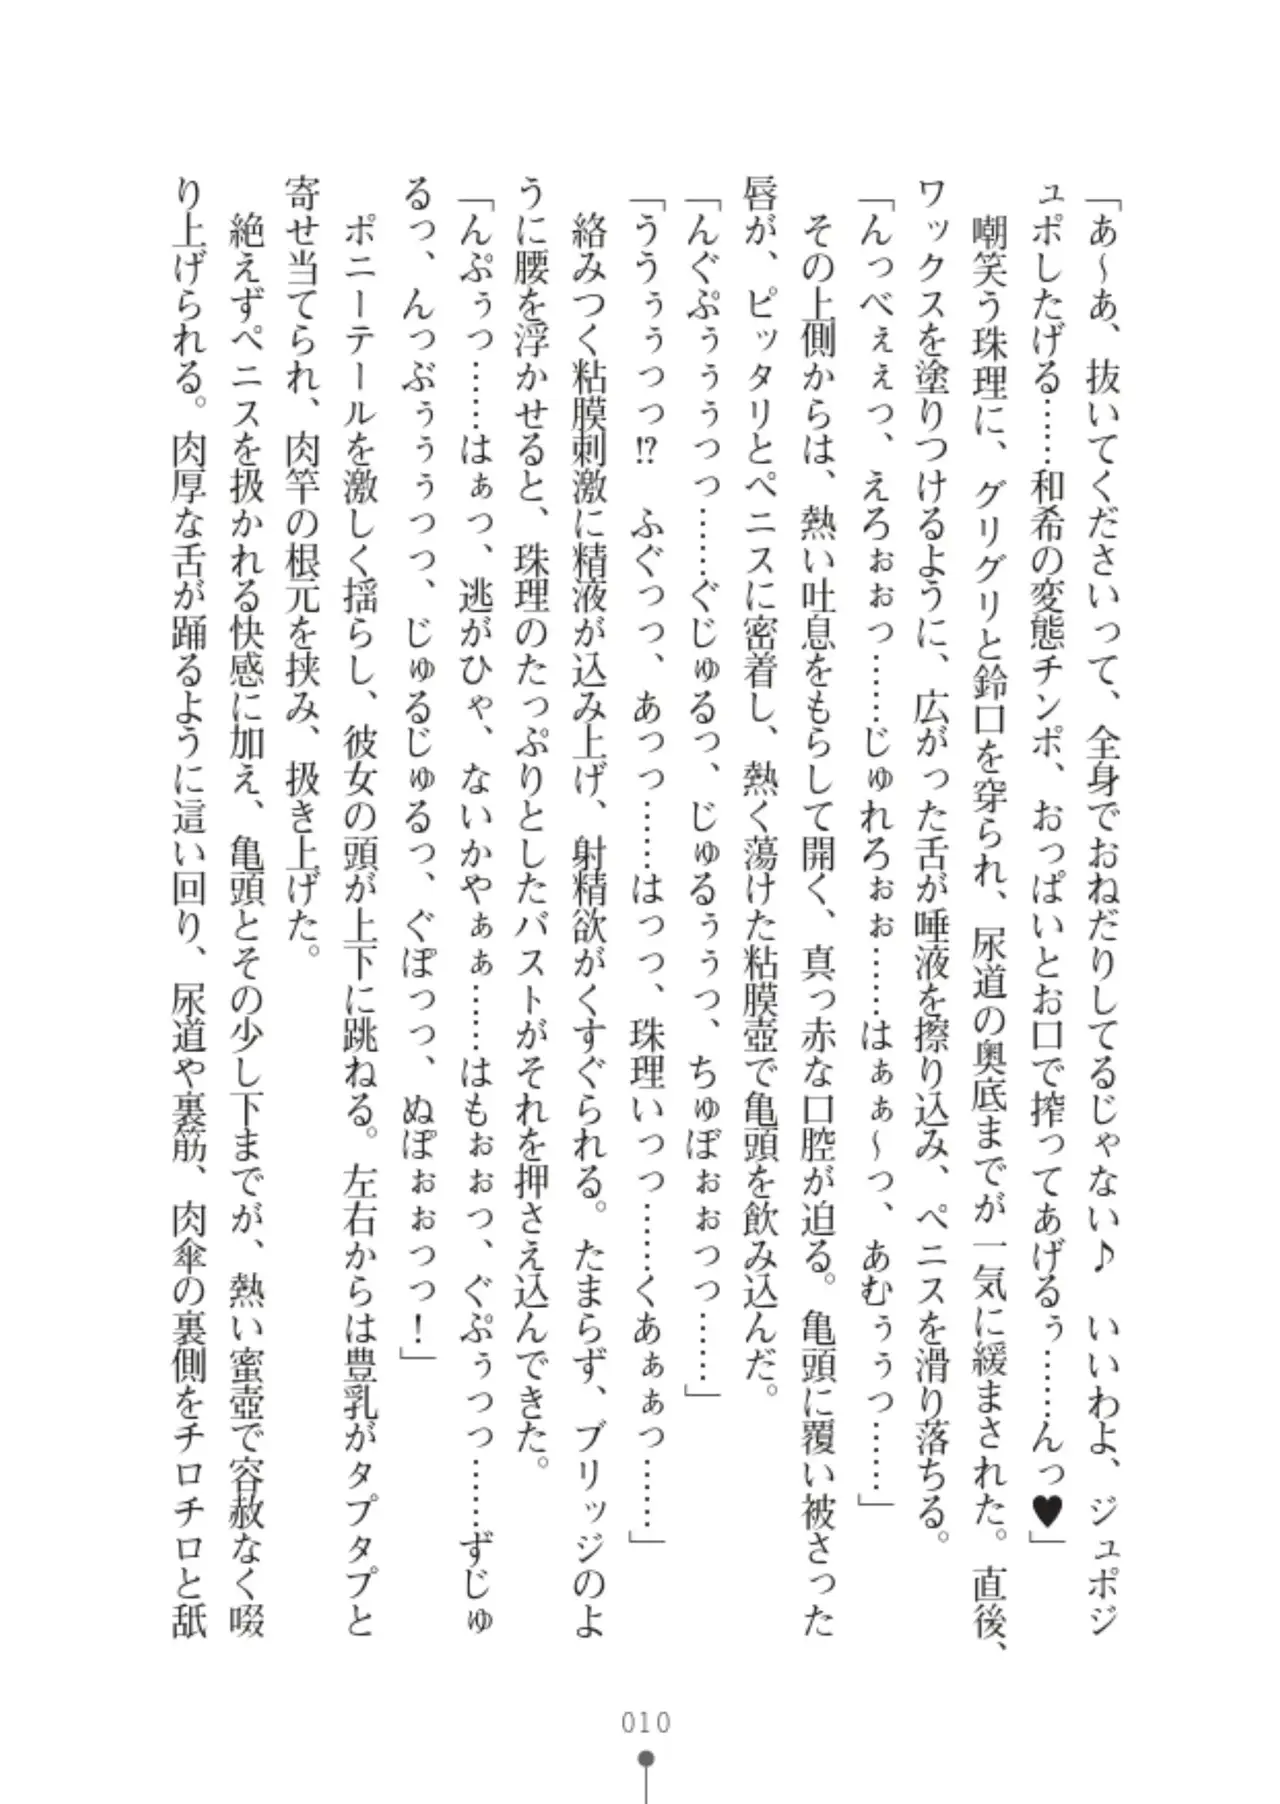 「あ～あ、抜いてくださいって、全身でおねだりしてるじゃない♪　いいわよ、ジュポジ
ュポしたげる……和希の変態チンポ、おっぱいとお口で搾ってあげるぅ……んっ♥」
　嘲笑う珠理に、グリグリと鈴口を穿られ、尿道の奥底までが一気に緩まされた。直後、
ワックスを塗りつけるように、広がった舌が唾液を擦り込み、ペニスを滑り落ちる。
「んっべぇぇっ、えろぉぉっ……じゅれろぉぉ……はぁぁ～っ、あむぅぅっ……」
　その上側からは、熱い吐息をもらして開く、真っ赤な口腔が迫る。亀頭に覆い被さった
唇が、ピッタリとペニスに密着し、熱く蕩けた粘膜壺で亀頭を飲み込んだ。
「んぐぷぅぅぅっっ……ぐじゅるっ、じゅるぅぅっ、ちゅぽぉぉっっ……」
「ううぅぅっっ!?　ふぐっっ、あっっ……はっっ、珠理いっっ……くあぁぁっ……」
　絡みつく粘膜刺激に精液が込み上げ、射精欲がくすぐられる。たまらず、ブリッジのよ
うに腰を浮かせると、珠理のたっぷりとしたバストがそれを押さえ込んできた。
「んぷぅっ……はぁっ、逃がひゃ、ないかやぁぁ……はもぉぉっ、ぐぷぅっっ……ずじゅ
るっ、んっぶぅぅぅっっ、じゅるじゅるっ、ぐぽっっ、ぬぽぉぉっっ！」
　ポニーテールを激しく揺らし、彼女の頭が上下に跳ねる。左右からは豊乳がタプタプと
寄せ当てられ、肉竿の根元を挟み、扱き上げた。
　絶えずペニスを扱かれる快感に加え、亀頭とその少し下までが、熱い蜜壺で容赦なく啜
り上げられる。肉厚な舌が踊るように這い回り、尿道や裏筋、肉傘の裏側をチロチロと舐
010